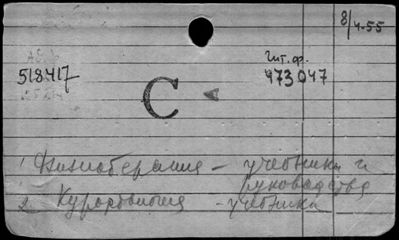 8/4-55
Чит. ф.
518417
473047
С
1. Физиотерапия – учебники и
руководства
2. Курортология – учебники